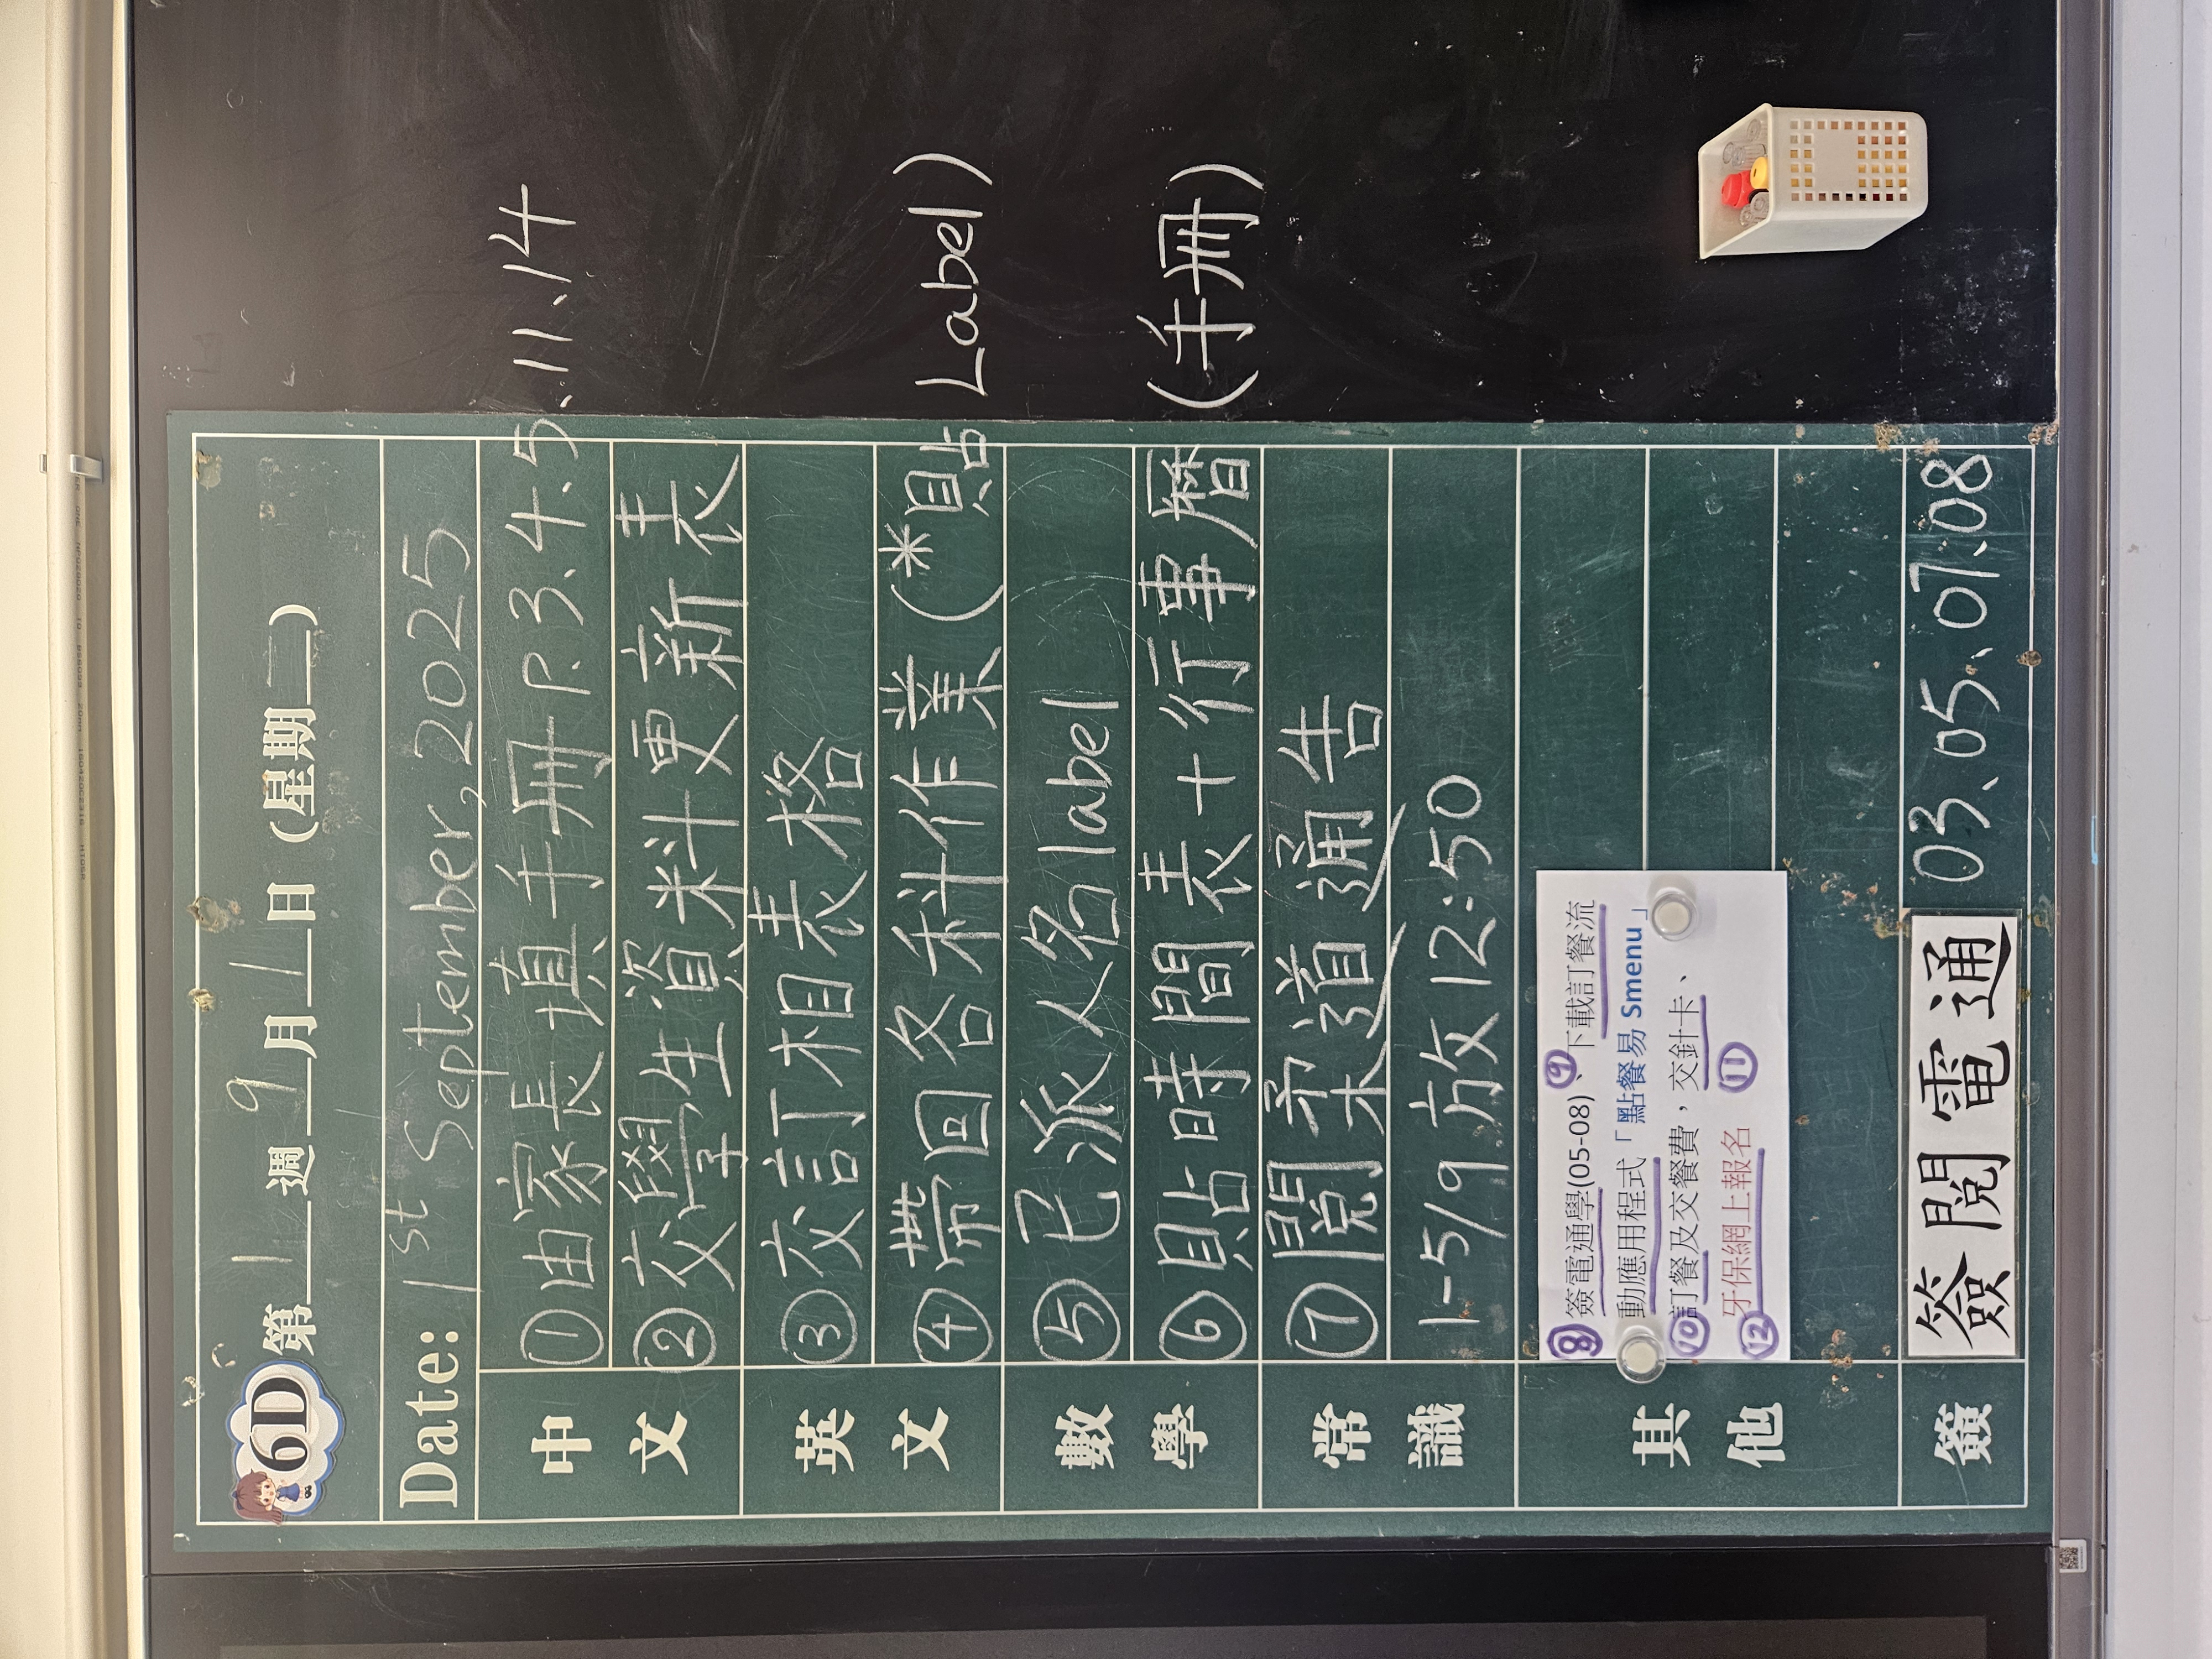 6D 第 1 週 9 月 1 日 (星期 二)
Date: 1st September, 2025
中文
①由家長填手冊 P.3、4、5、11、14
②交學生資料更新表
英文
③交訂相表格
④帶回各科作業(*貼 Label)
數學
⑤已派人名label
⑥貼時間表+行事曆 (手冊)
常識
⑦閱柔道通告
1-5/9放12:50
其他
⑧簽電通學(05-08)、⑨下載訂餐流
動應用程式「點餐易 Smenu」
⑩訂餐及交餐費,交針卡、⑪
⑫牙保網上報名
簽
簽閱電通 03、05、07、08